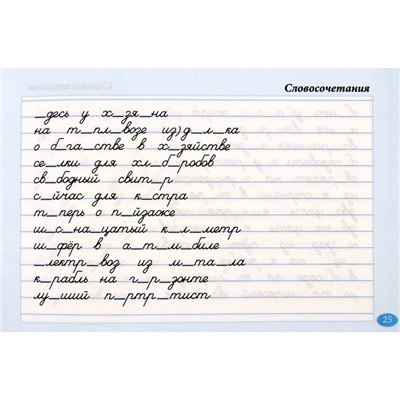 Словосочетания
_десь у х_зя_на
на т_пл_возе из)д_л_ка
о б_га_стве в х_зяйстве
се_лки для хл_б_робов
св_бодный свит_р
с_йчас для к_стра
т_перь о п_йзаже
ш_с_надцатый к_л_метр
ш_фёр в а_т_м_биле
_лектр_воз из м_та_ла
к_рабль на г_р_зонте
лу_ший п_ртр_тист
25